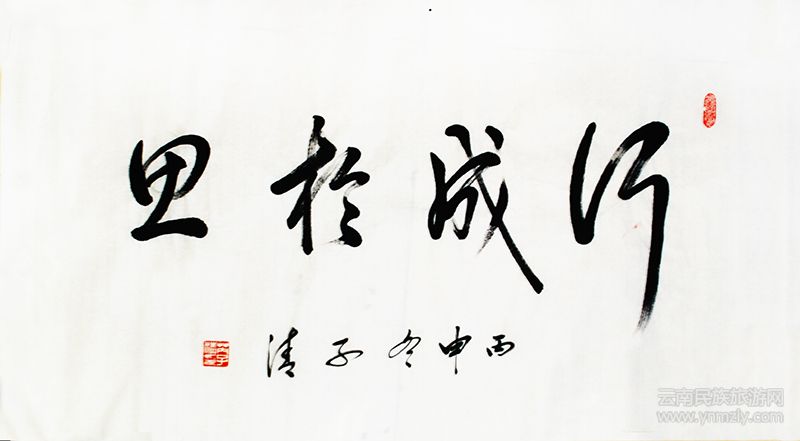 行成於思
丙申冬子清
云南民族旅游网
www.ynmzly.com